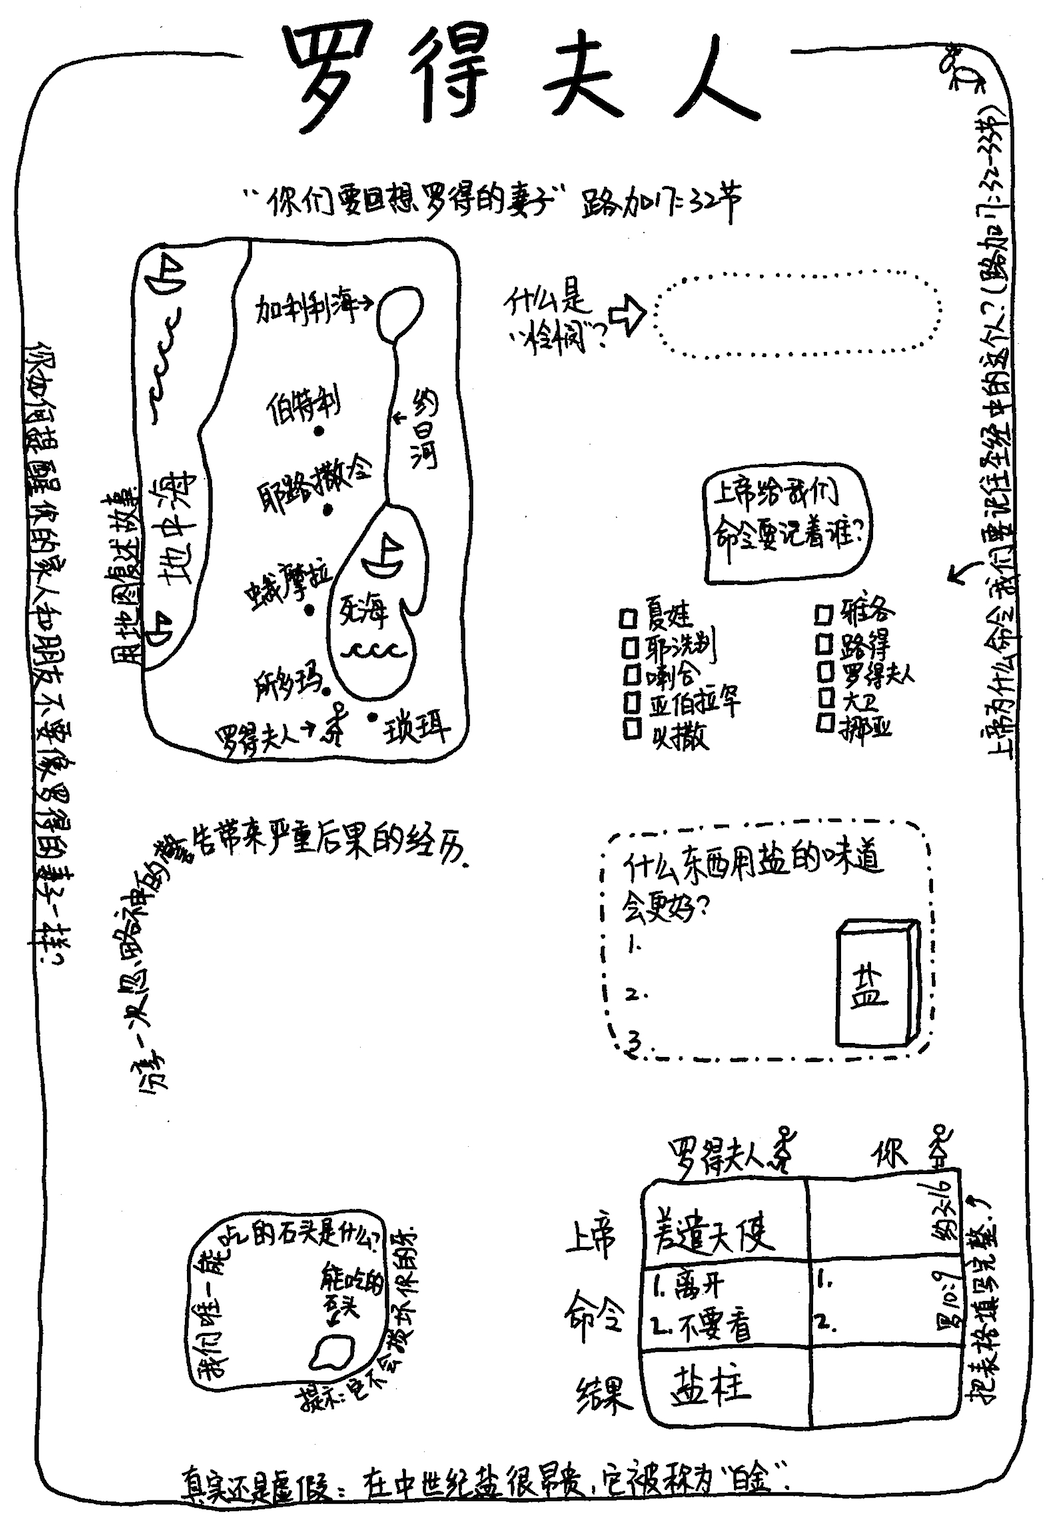 罗得夫人
“你们要回想罗得的妻子” 路加17:32节
上帝为什么命令我们要记住圣经中的这个人?(路加17:32-33节)
你如何提醒你的家人和朋友不要像罗得的妻子一样?
用地图复述故事
地中海
加利利海
约旦河
伯特利
耶路撒冷
蛾摩拉
死海
所多玛
罗得夫人
琐珥
什么是
“怜悯”?
上帝给我们
命令要记着谁?
夏娃
耶洗别
喇合
亚伯拉罕
以撒
雅各
路得
罗得夫人
大卫
挪亚
分享一次忽略神的警告带来严重后果的经历.
什么东西用盐的味道
会更好?
1.
2.
3.
盐
我们唯一能吃的石头是什么?
能吃的
石头
提示:它不会损坏你的牙.
罗得夫人 你
上帝 差遣天使 约3:16
命令 1.离开 1.
2.不要看 2. 罗10:9
结果 盐柱
把表格填写完整.
真实还是虚假: 在中世纪盐很昂贵,它被称为“白金”.